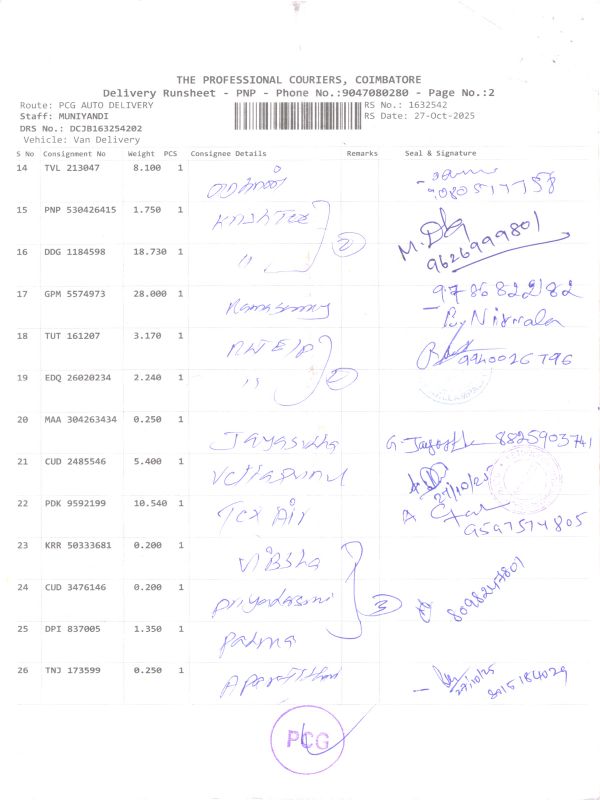 THE PROFESSIONAL COURIERS, COIMBATORE
Delivery Runsheet - PNP - Phone No.:9047080280 - Page No.:2
Route: PCG AUTO DELIVERY RS No.: 1632542
Staff: MUNIYANDI RS Date: 27-Oct-2025
DRS No.: DCJB163254202
Vehicle: Van Delivery
S No Consignment No Weight PCS Consignee Details Remarks Seal & Signature
14 TVL 213047 8.100 1
9080517758
15 PNP 530426415 1.750 1
M.
16 DDG 1184598 18.730 1 " 2 9626999801
17 GPM 5574973 28.000 1 9786822182
Nirmala
18 TUT 161207 3.170 1 9940026796
19 EDQ 26020234 2.240 1 " 2
20 MAA 304263434 0.250 1 Jayasudha G. 8825903741
21 CUD 2485546 5.400 1 27/10/25
22 PDK 9592199 10.540 1 Tex Air A 9597574805
23 KRR 50333681 0.200 1 Vibsha
24 CUD 3476146 0.200 1 Priyadasini 3 8098247801
25 DPI 837005 1.350 1 Padma
26 TNJ 173599 0.250 1 27/10/25 8015184029
PCG